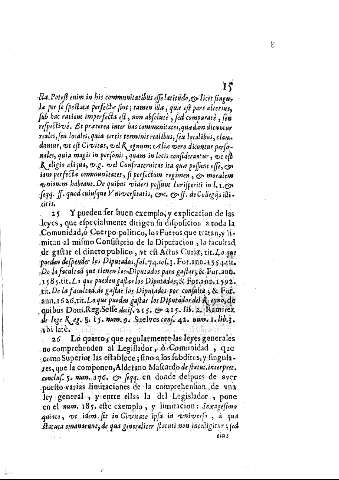 15
8
cta. Potest enim in his communitatibus esse latitudo, & licet singu-
læ per se spectatæ perfectæ sint; tamen illa, quæ est pars alterius,
sub hac ratione imperfecta est, non absolutè, sed comparatè, seu
respectivè. Et præterea inter has communitates, quædam dicuntur
reales, seu locales, quia certis terminis realibus, seu localibus, clau-
dantur, ut est Civitas, vel Regnum: Aliæ verò dicuntur perso-
nales, quia magis in personis, quam in locis considerantur, ut est
Religio aliqua, v.g. vel Confraternitas
iam perfectæ communitates, si perfectum regimen, & moralem
unionem habeant. De quibus videri possunt Iurisperiti in l.1. &
seqq. ff. quod cuiusque Vniversitatis, &c. & ff. de Collegijs illi-
citis.
25 Y pueden ser buen exemplo, y explicacion de las
leyes, que especialmente dirigen su disposicion a toda la
Comunidad, ò Cuerpo politico, los Fueros que tratan, y li-
mitan al mismo Consistorio de la Diputacion, la facultad
de gastar el dinero publico, ut est Actus Curiæ, tit. Lo que
puedan despender los Diputados, fol. 74. col. 3. For. ann.
De la facultad que tienen los Diputados para gastar, & For. ann.
1585. tit. Lo que pueden gastar los Diputados, & For. ann. 1592.
tit. De la facultad de gastar los Diputados por consulta, & For.
ann. 1626. tit. Lo que puedan gastar los Diputados del Reyno, de
quibus Domi. Reg. Sesse decis. 215. & 225. lib. 2. Ramirez
de lege Reg. §. 15. num. 9. Suelves cons. 42. num. 1. lib. 3.
ubi latè.
26 Lo quarto; que regularmente las leyes generales
no comprehenden al Legislador, ò Comunidad, que
como Superior las establece; sino a los subditos, y singula-
res, que la componen, Alderano Mascardo de statut. interpret.
conclus. 5. num. 176. & seqq. en donde despues de aver
puesto varias limitaciones de la comprehension de una
ley general, y entre ellas la del Legislador, pone
en el num. 185. este exemplo, y limitacion: Sexagesimo
quinto, ut idem sit in Civitate ipsa in universo, à qua
statuta emanarunt, de qua generaliter statuti non intelligitur; sed
eius